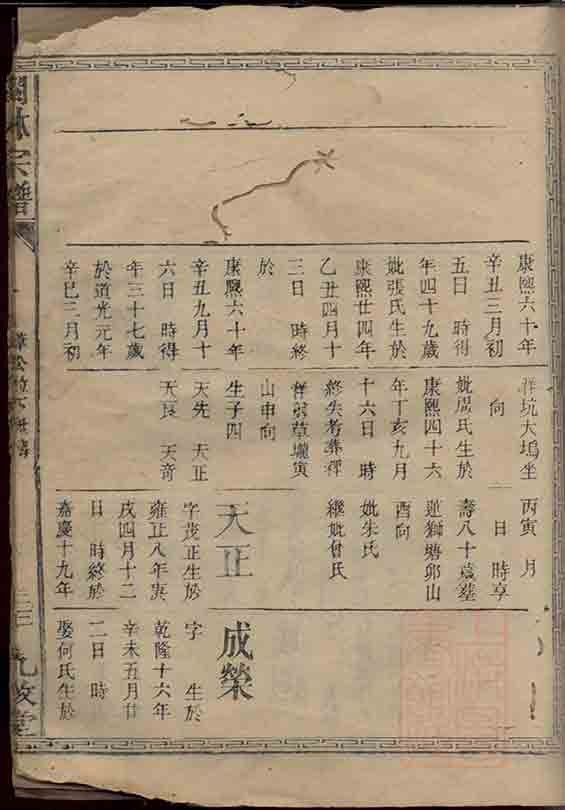 康熙六十年
辛丑三月初
五日 時得
年四十九歲
妣張氏生於
康熙廿四年
乙丑四月十
三日 時終
於
康熙六十年
辛丑九月十
六日 時得
年三十七歲
於道光元年
辛巳三月初
坑大塢坐
向
妣周氏生於
康熙四十六
年丁亥九月
十六日 時
終失考葬
草壠寅
山申向
生子四
天先 天正
天良 天奇
丙寅 月
日 時享
壽八十歲墓
蓮獅磅卯山
酉向
妣朱氏
繼妣曾氏
天正
字茂正生於
雍正八年庚
戌四月十二
日 時終於
嘉慶十九年
成榮
字 生於
乾隆十六年
辛未五月廿
二日 時
娶何氏生於
林宗譜
公位下世譜
三
堂